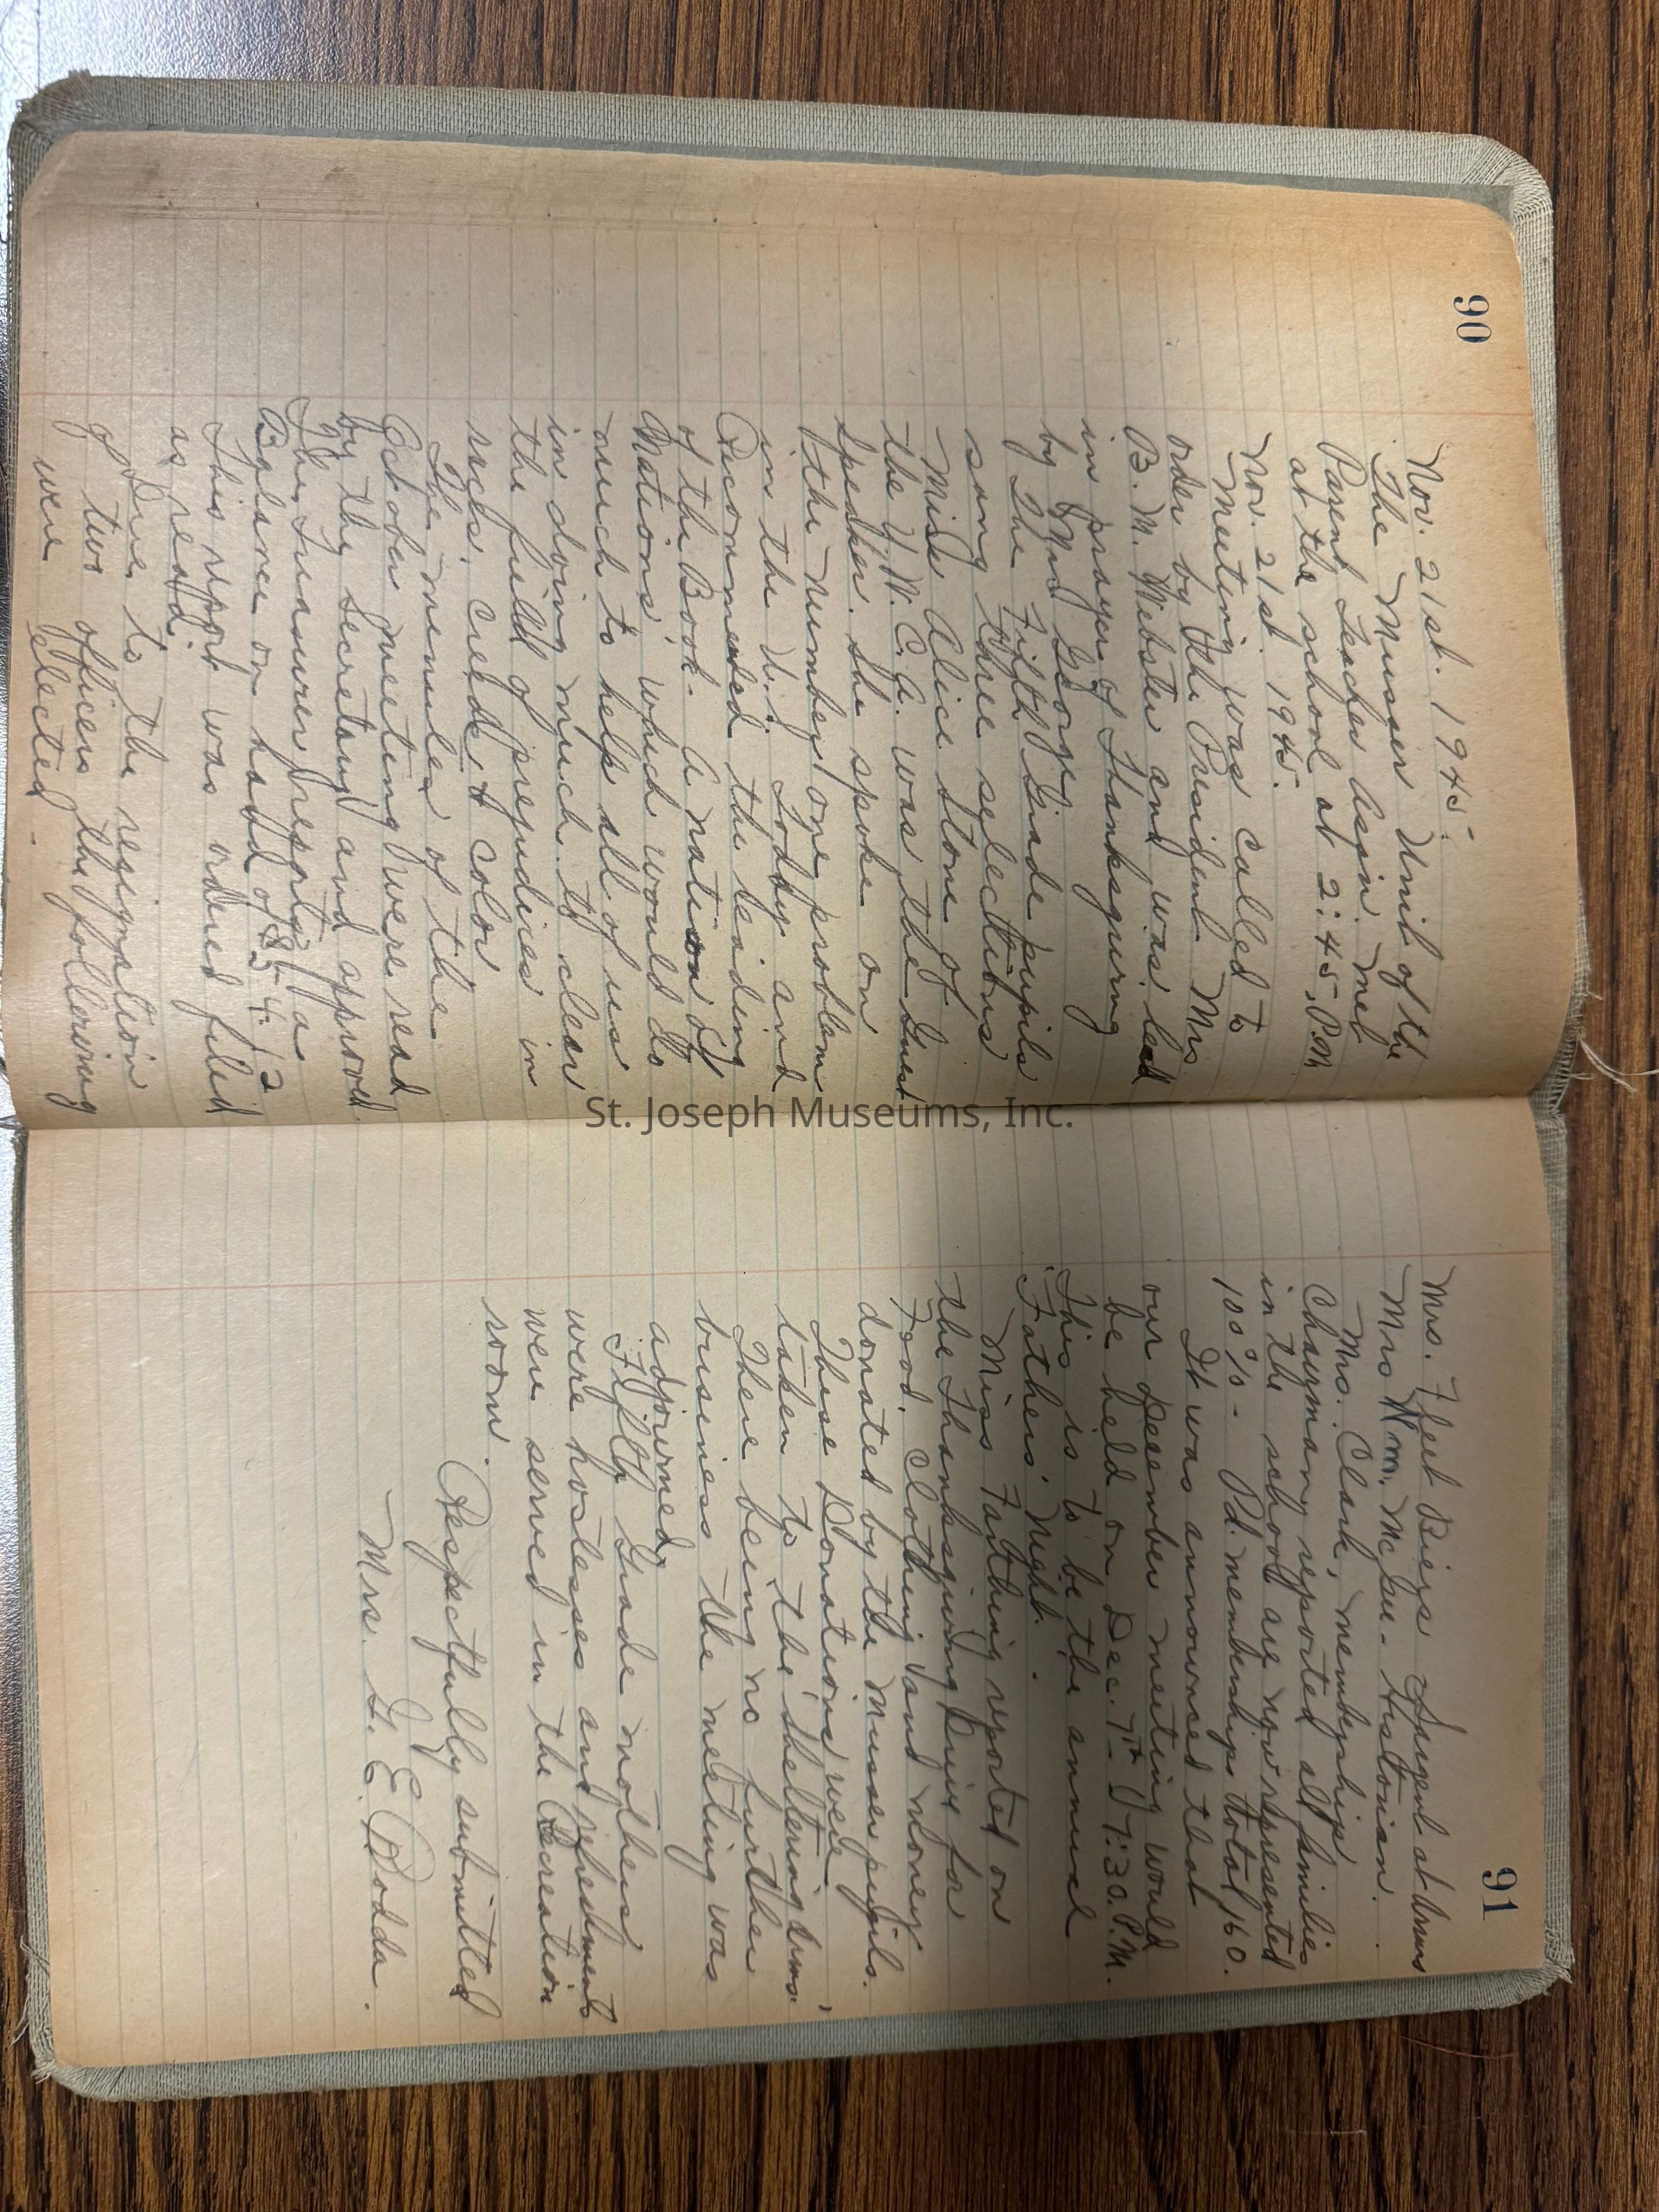 90
Nov. 21st. 1945.
The Musser Unit of the
Parent Teacher Assn. met
at the school at 2:45, P.M
Nov. 21st. 1945.
Meeting was called to
order by the President Mrs
B. M. Webster and was lead
in prayer of Thanksgiving
by Mrs George
The Fifth Grade pupils
sang three selections
Miss Alice Stone of
the Y.W.C.A. was the Guest
Speaker. She spoke on
the number one problem
in the U.S. Today and
Recommended the reading
of the Book - A Nation of
Nations, which would do
much to help all of us
in doing much to clear
the field of prejudices in
race, creed & color
The minutes of the
October meeting were read
by the Secretary and approved.
The Treasurer reported a
Balance on hand of 85.42
This report was ordered filed
as read.
Due to the resignation
of two officers the following
were elected -
91
Mrs. Fleet Bieze Sargent at Arms
Mrs Wm. McGee - Historian.
Mrs. Clark, membership
Chairman, reported all families
in the school are now represented
100% - Pd. memberships total 160.
It was announced that
our December meeting would
be held on Dec. 7th 7:30. P.M.
This is to be the annual
"Fathers' Night".
Miss Farthing reported on
the Thanksgiving Drive for
Food, clothing and money
donated by the Musser pupils.
These Donations were
taken to the 'Sheltering Arms.'
There being no further
business the meeting was
adjourned.
Fifth Grade mothers
were hostesses and refreshments
were served in the Recreation
room.
Respectfully submitted
Mrs. G. E. Dodds.
St. Joseph Museums, Inc.